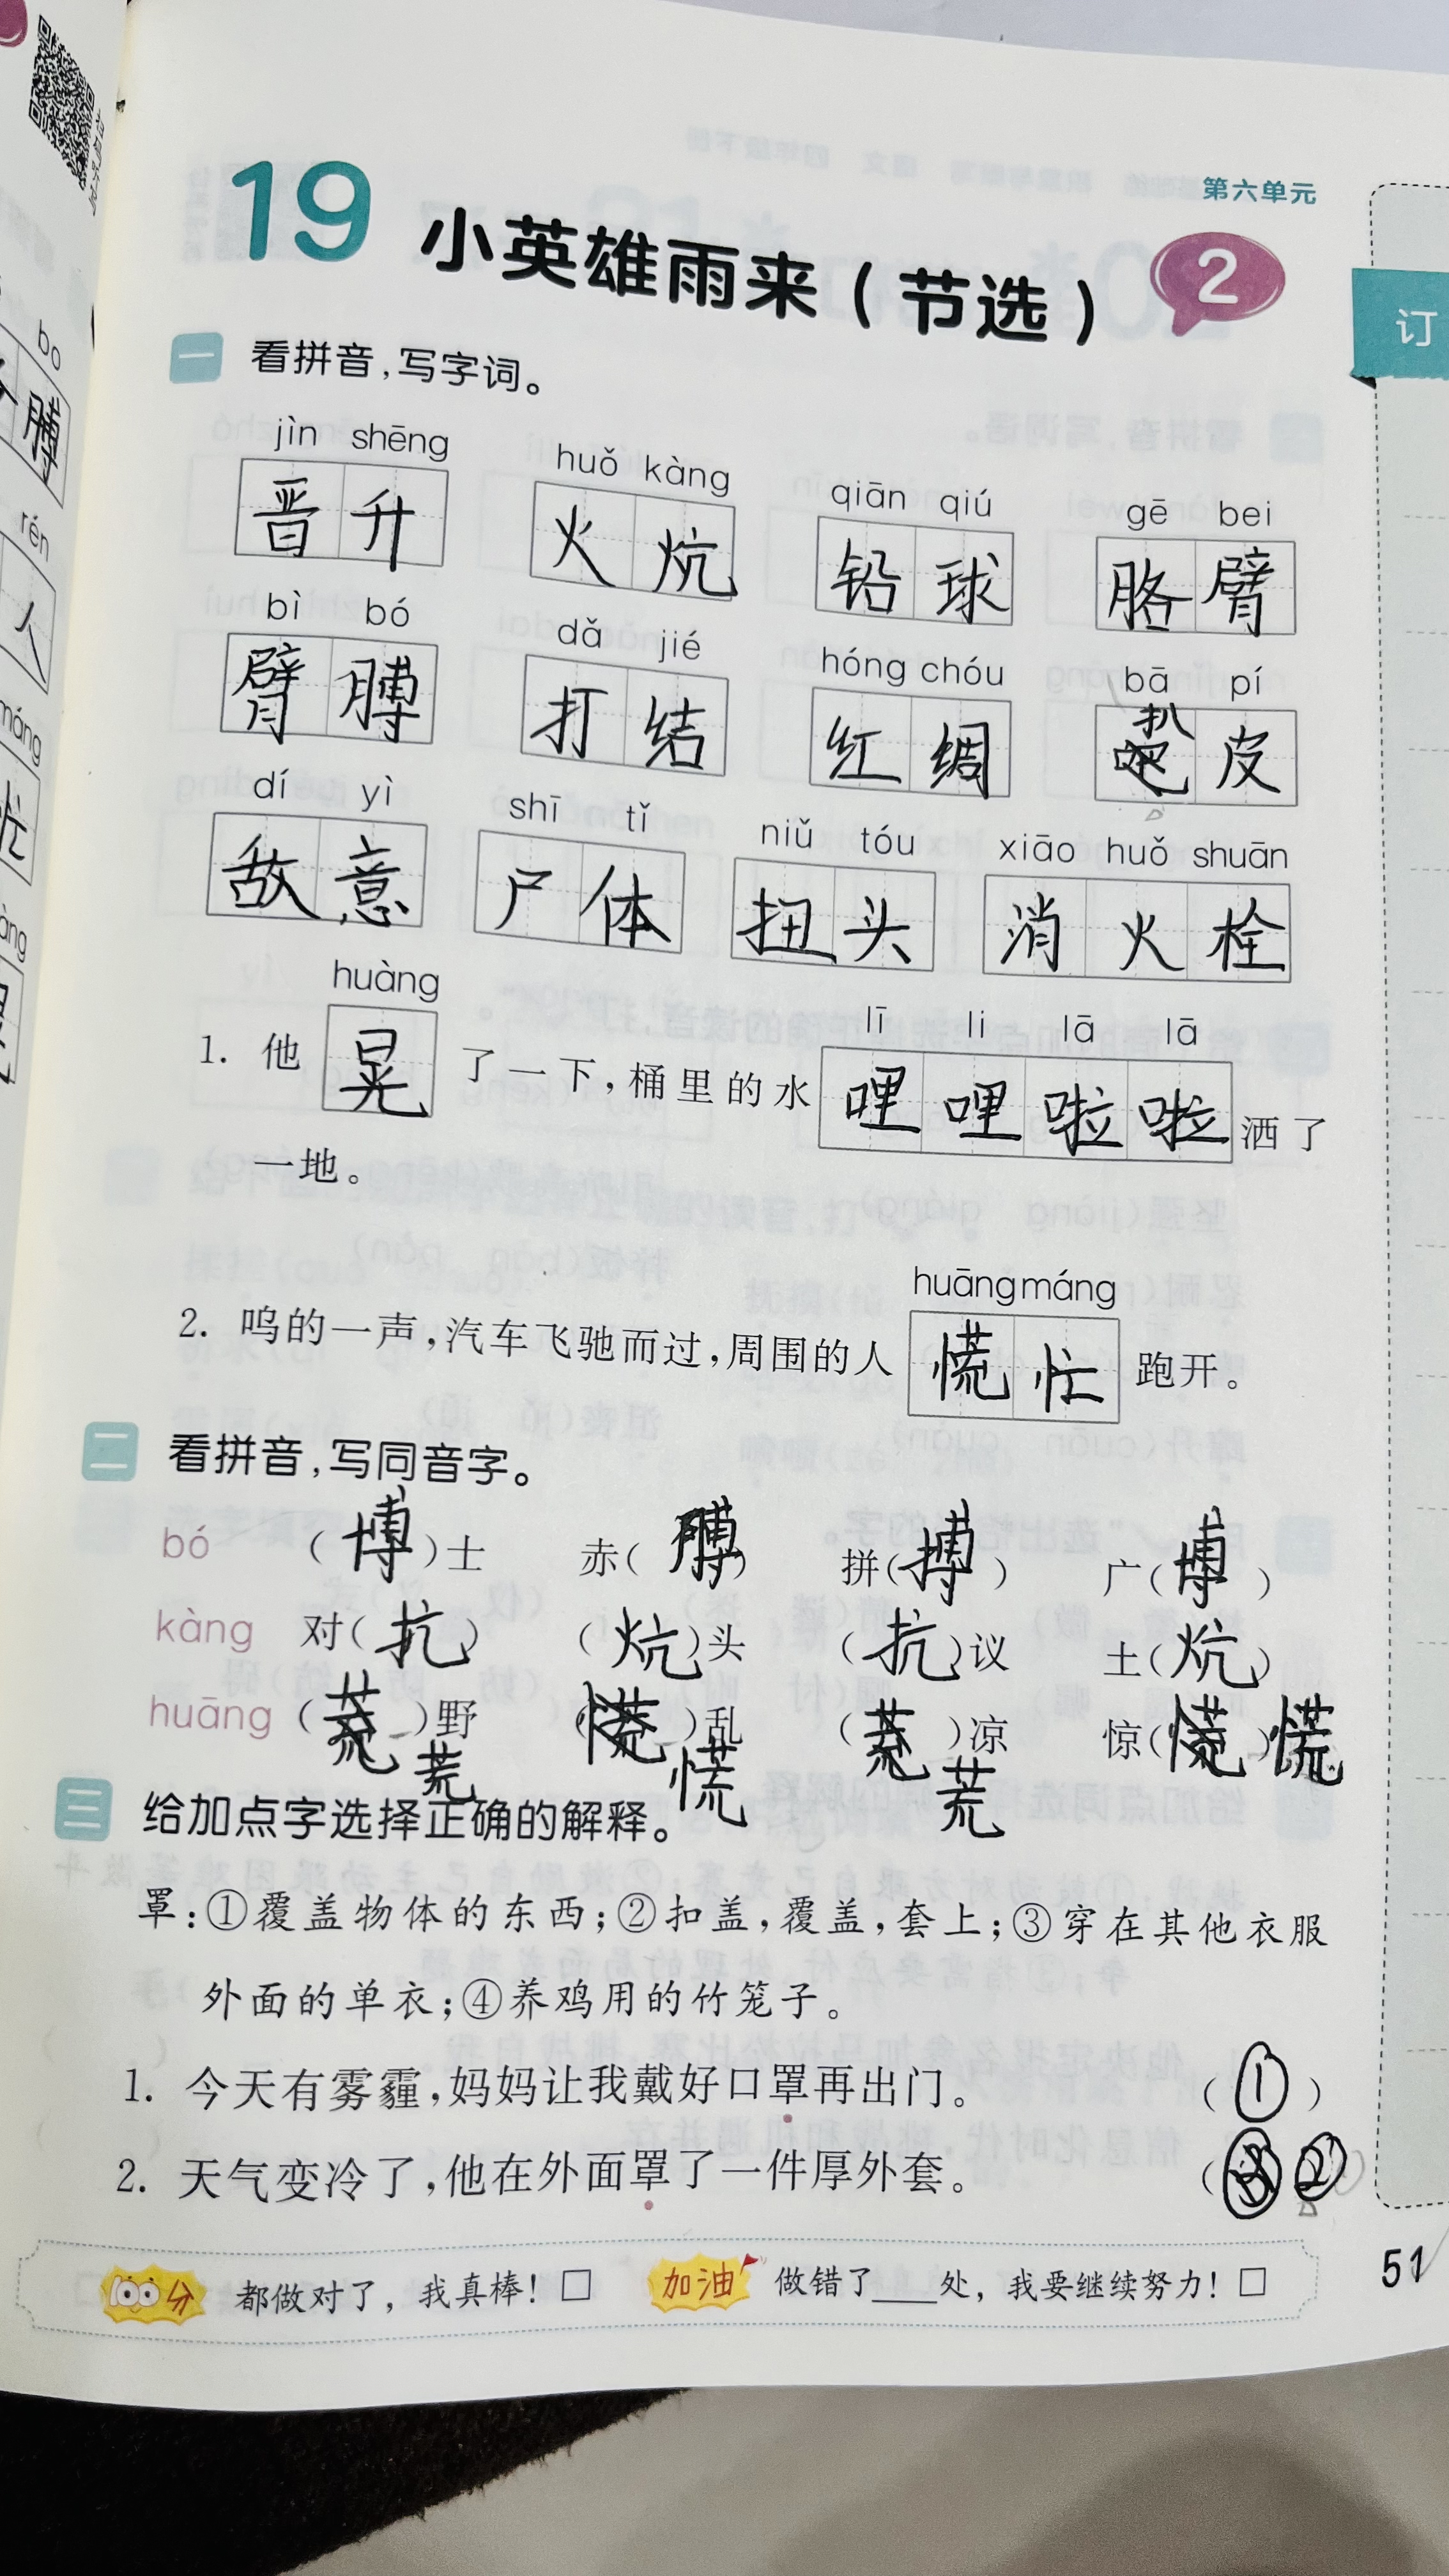 第六单元
19 小英雄雨来（节选） 2
订
一 看拼音，写字词。
jìn shēng huǒ kàng qiān qiú gē bei
晋升 火炕 铅球 胳臂
bì bó dǎ jié hóng chóu bā pí
臂膊 打结 红绸 扒皮
dí yì shī tǐ niǔ tóu xiāo huǒ shuān
敌意 尸体 扭头 消火栓
huàng lī li lā lā
1. 他晃了一下，桶里的水哩哩啦啦洒了
一地。
huāng máng
2. 呜的一声，汽车飞驰而过，周围的人慌忙跑开。
二 看拼音，写同音字。
bó （博）士 赤（膊） 拼（搏） 广（博）
kàng 对（抗） （炕）头 （抗）议 土（炕）
huāng （ ）野 荒 （ ）乱 慌 （ ）凉 荒 惊（ ）慌
三 给加点字选择正确的解释。
罩：①覆盖物体的东西；②扣盖，覆盖，套上；③穿在其他衣服
外面的单衣；④养鸡用的竹笼子。
1. 今天有雾霾，妈妈让我戴好口罩再出门。 （①）
2. 天气变冷了，他在外面罩了一件厚外套。 （ ②
100分 都做对了，我真棒！□ 加油 做错了____处，我要继续努力！□
51
bo
膊
rén
人
máng
忙